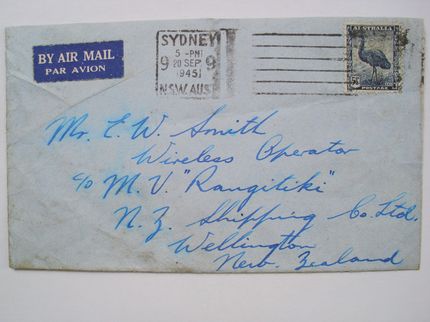 BY AIR MAIL
PAR AVION
SYDNEY
5 - PM
9 20 SEP 9
1945
N.S.W. AUST
AUSTRALIA
POSTAGE
Mr. E. W. Smith
Wireless Operator
c/o M. V. "Rangitiki"
N. Z. Shipping Co. Ltd.
Wellington
New Zealand